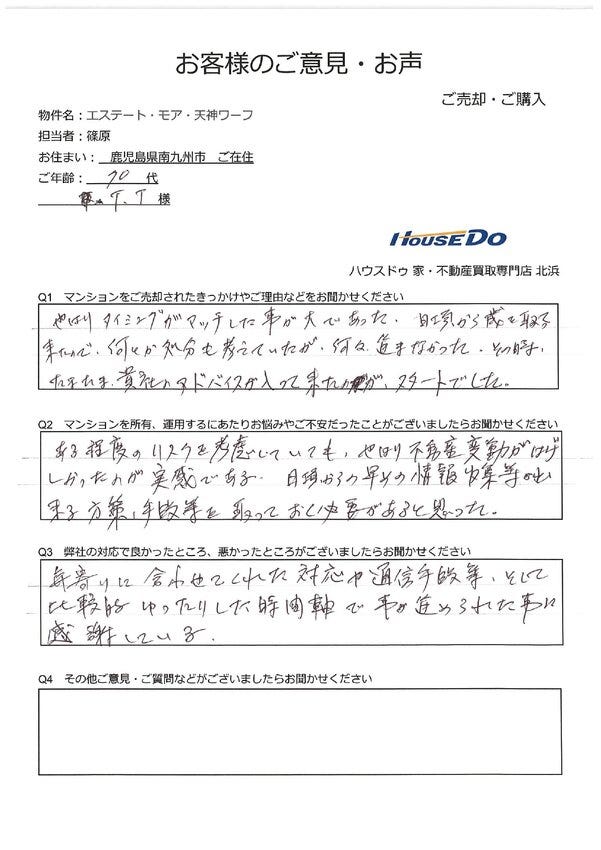 お客様のご意見・お声
ご売却・ご購入
物件名：エステート・モア・天神ワーフ
担当者：篠原
お住まい： 鹿児島県南九州市 ご在住
ご年齢： 70 代
T.T 様
HOUSEDO
ハウスドゥ 家・不動産買取専門店 北浜
Q1 マンションをご売却されたきっかけやご理由などをお聞かせください
やはりタイミングがマッチした事が大であった。日頃から歳を取る
来たので、何とか処分も考えていたが、何々進まなかった。その時、
たまたま、貴社のアドバイスが入って来たのが、スタートでした。
Q2 マンションを所有、運用するにあたりお悩みやご不安だったことがございましたらお聞かせください
ある程度のリスクを考慮していても、やはり不動産変動がはげ
しかったのが実感である。日頃からの早めの情報収集等が出
来る方策、手段等を取っておく必要があると思った。
Q3 弊社の対応で良かったところ、悪かったところがございましたらお聞かせください
年寄りに合わせてくれた対応や通信手段等、そして
比較的ゆったりした時間軸で事が進められた事に
感謝している。
Q4 その他ご意見・ご質問などがございましたらお聞かせください